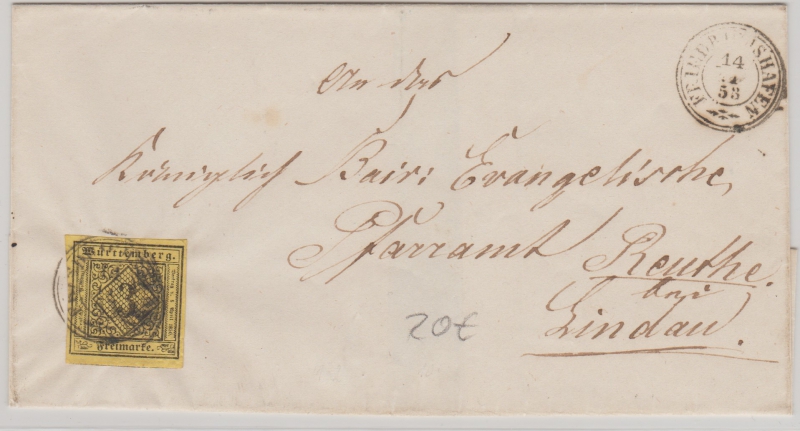 FRIEDRICHSHAFEN
14
53
An das
Königlich Bair: Evangelische
Pfarramt Reuthe
bei
Lindau.
Württemberg.
3
Freimarke.
20€